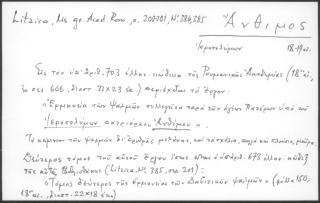 Litzica, Ms gr. Acad. Rom., σ. 200-201, Nº 384, 385
Ἄνθιμος
Ἱεροσολύμων 18-19 αι.
Εἰς τὸν ὑπ' ἀριθ. 703 ἑλλην. κώδικα τῆς Ρουμανικῆς Ἀκαδημίας (18ου αἰ.,
ἐκ σελ. 606, διαστ. 22×23 ἑκ.) περιέχεται τὸ ἔργον:
«Ἑρμηνεία τῶν Ψαλμῶν συλλεγεῖσα παρὰ τῶν ἁγίων Πατέρων ὑπὸ τοῦ
Ἱεροσολύμων πατριάρχου Ἀνθίμου».
Τὸ κείμενον τῶν ψαλμῶν δι' ἐρυθρᾶς μελάνης, καὶ τὰ σχόλια,
Δεύτερος τόμος τοῦ αὐτοῦ ἔργου ἴσως εἶναι ὁ ὑπ' ἀριθ. 673 ἑλλην. κῶδιξ
τῆς αὐτῆς Βιβλιοθήκης (Litzica, Nº 385, σελ. 201):
«Τόμος δεύτερος τῆς ἑρμηνείας τῶν Δαβιτικῶν ψαλμῶν» (φύλλα 150,
18ου αἰ., διαστ. 22×18 ἑκ.)